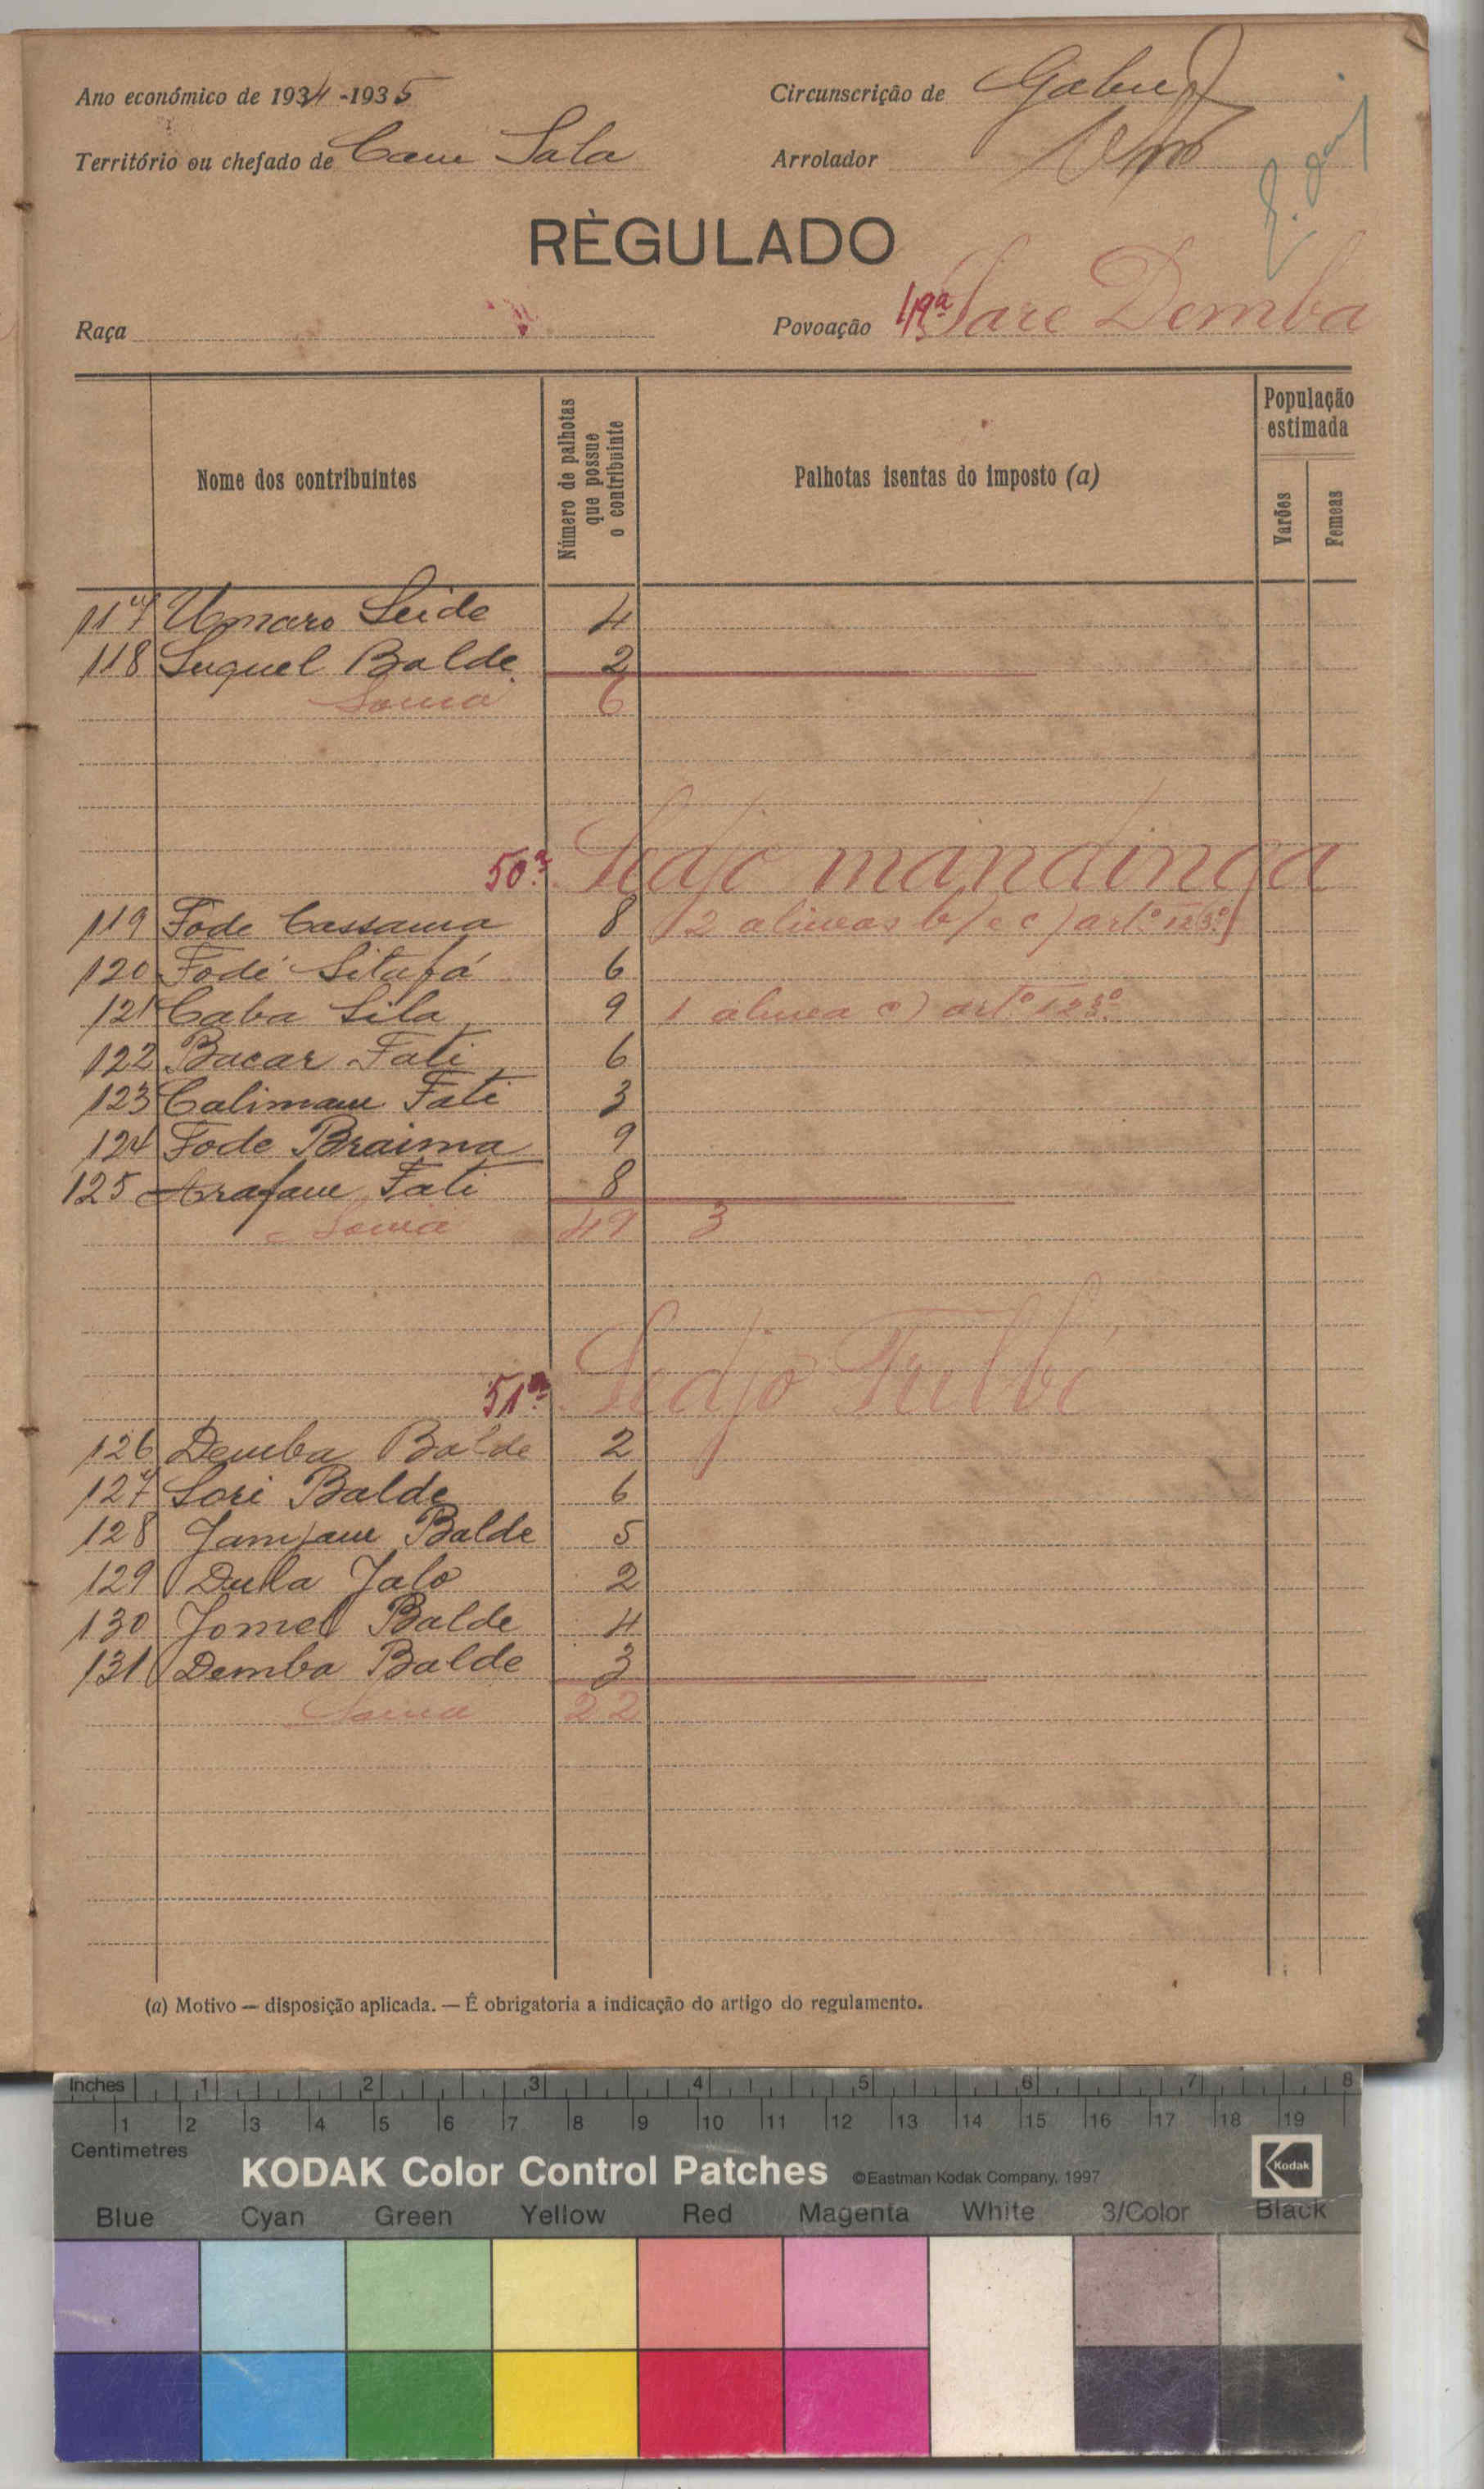 Ano económico de 1934-1935
Circunscrição de Gabu
Território ou chefado de Cam Sala
Arrolador
RÈGULADO
Raça
Povoação 49ª Sare Demba
Nome dos contribuintes
Número de palhotas que possue o contribuinte
Palhotas isentas do imposto (a)
População estimada
Varões
Femeas
117 Umaro Seide 4
118 Suquel Balde 2
Soma 6
50ª Ledjo mandinga
119 Fode Cassama 8 (2 alineas b) e c) artº 123º)
120 Fodé Sitafá 6
121 Caba Sila 9 1 alinea c) artº 123º
122 Bacar Fati 6
123 Calimam Fati 3
124 Fode Braima 9
125 Arafam Fati 8
Soma 49 3
51ª Ledjo Fulbé
126 Demba Balde 2
127 Sori Balde 6
128 Jamjam Balde 5
129 Dulla Jalo 2
130 Jomel Balde 4
131 Demba Balde 3
Soma 22
(a) Motivo — disposição aplicada. — É obrigatoria a indicação do artigo do regulamento.
Inches 1 2 3 4 5 6 7 8
1 2 3 4 5 6 7 8 9 10 11 12 13 14 15 16 17 18 19
Centimetres
KODAK Color Control Patches ©Eastman Kodak Company, 1997 Kodak
Blue Cyan Green Yellow Red Magenta White 3/Color Black